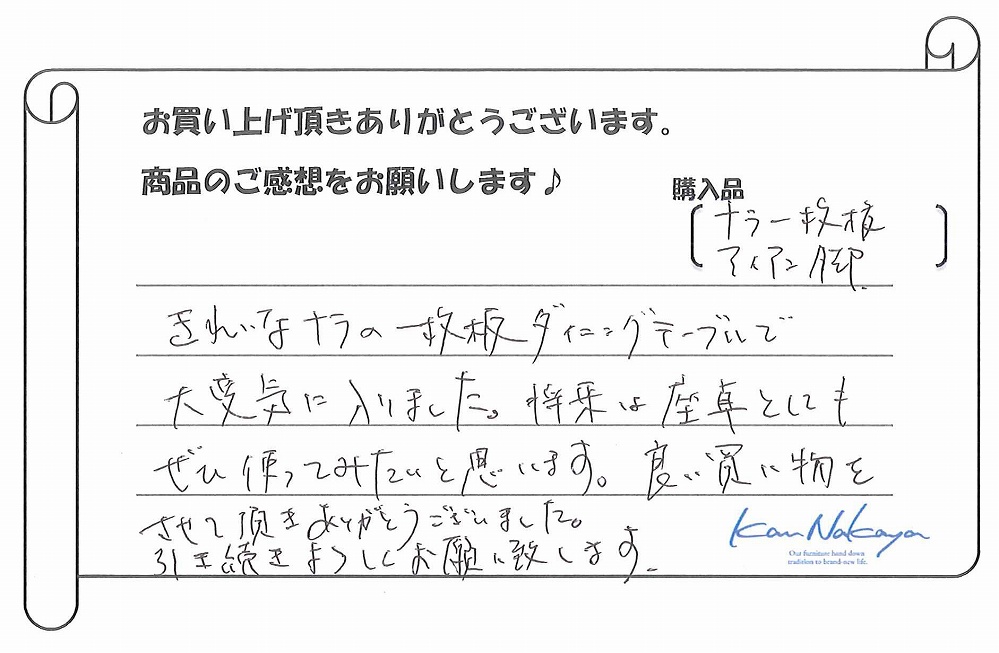 お買い上げ頂きありがとうございます。
商品のご感想をお願いします♪
購入品
ナラ一枚板
アイアン脚.
きれいなナラの一枚板ダイニングテーブルで
大変気に入りました。将来は座卓としても
ぜひ使ってみたいと思います。良い買い物を
させて頂きありがとうございました。
引き続きよろしくお願い致します.
KanNakaya
Our furniture hand down
tradition to brand-new life.